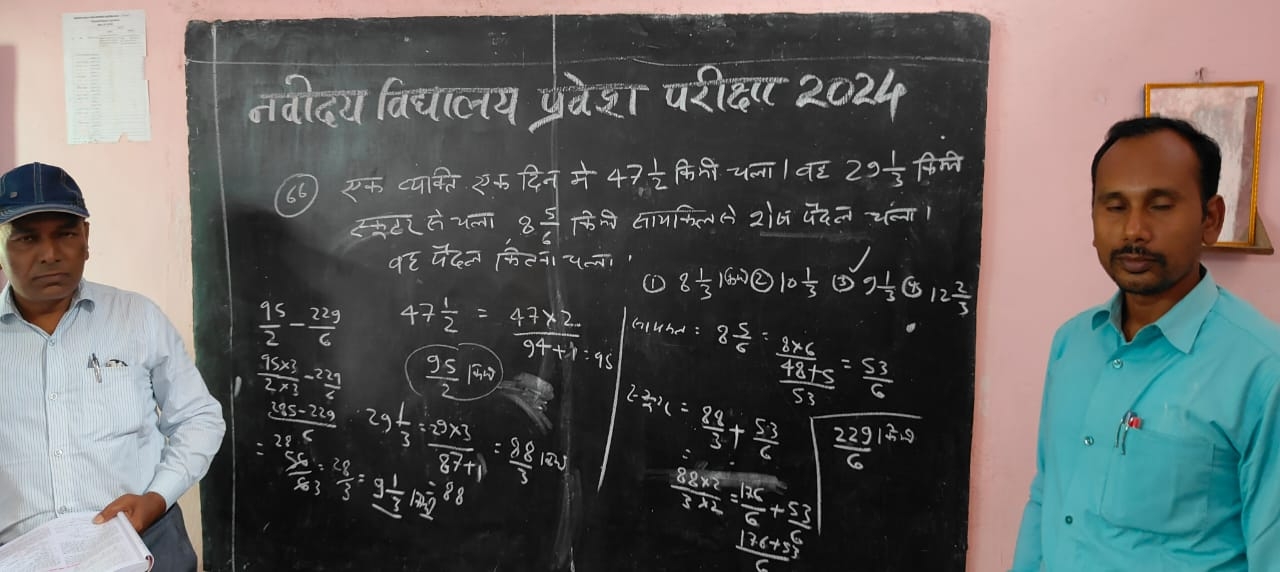 नवोदय विद्यालय प्रवेश परीक्षा 2024
66 एक व्यक्ति एक दिन मे 47 1/2 किमी चला। वह 29 1/3 किमी
स्कूटर से चला 8 5/6 किमी सायकिल से शेष पैदल चला।
वह पैदल कितना चला।
① 8 1/3 किमी ② 10 1/3 ③ ✓ 9 1/3 ④ 12 2/3
95/2 - 229/6
95×3/2×3 - 229/6
285-229/6
= 28 56/6 3 = 28/3 = 9 1/3 किमी
47 1/2 = 47×2
94+1 = 95
95/2 किमी
29 1/3 = 29×3
87+1 = 88/3 किमी
= 88
: 8 5/6 = 8×6
48+5 = 53/6
53
= 88/3 + 53/6
88×2/3×2 = 176/6 + 53/6
176+53/6
229/6 किमी